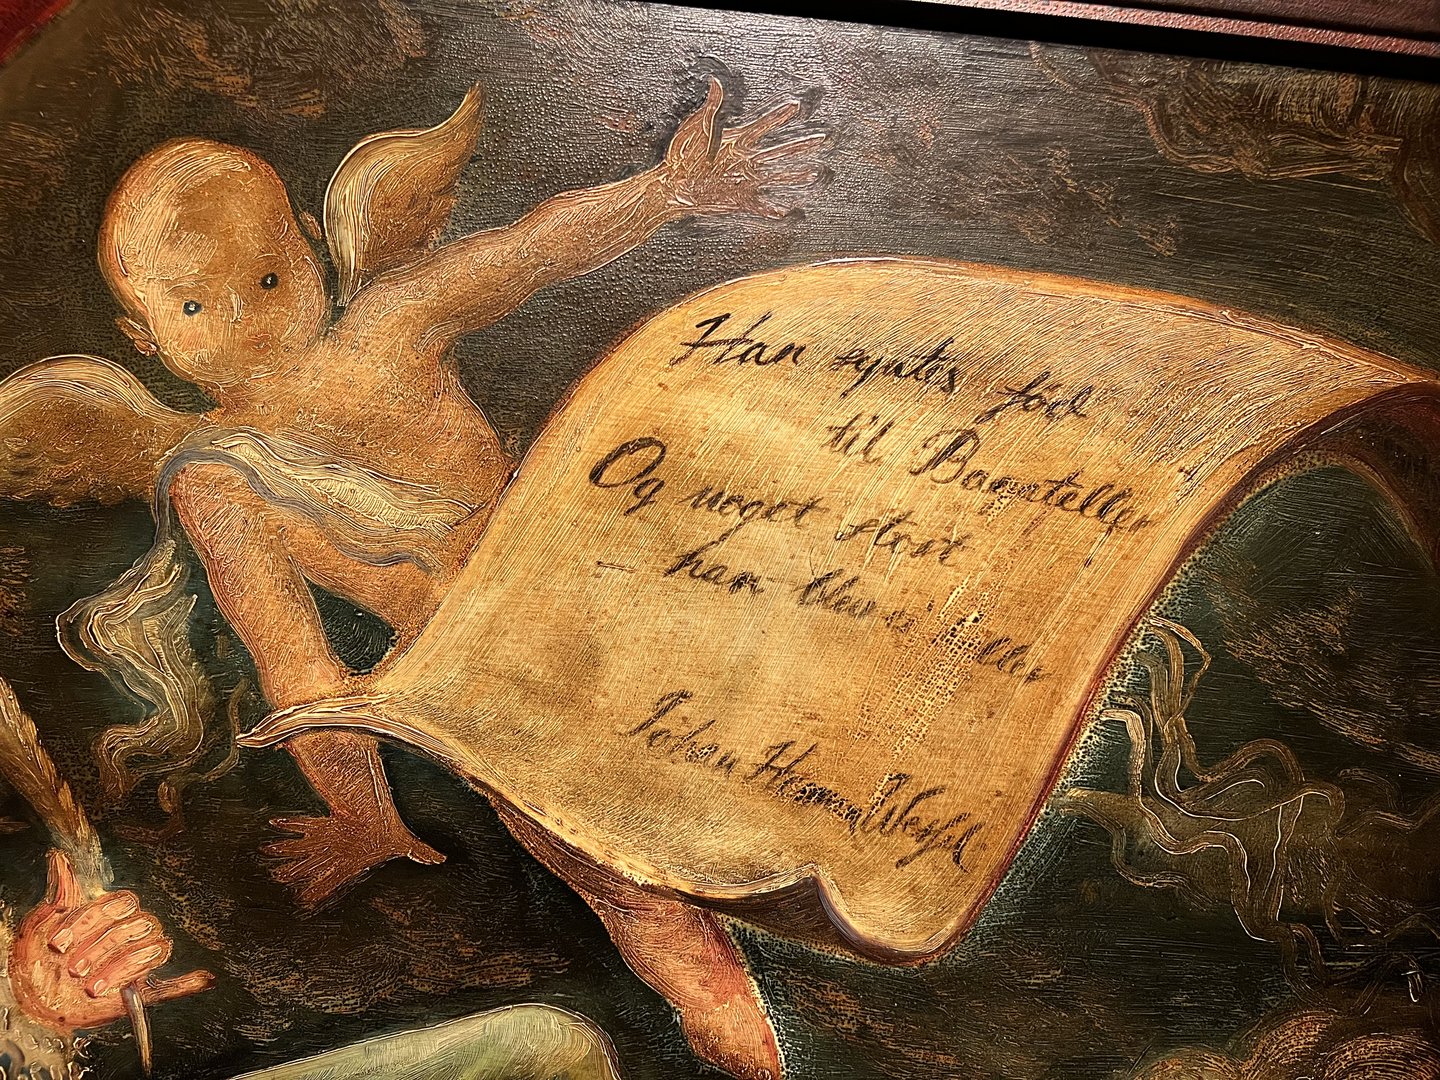 Han syntes fød
til Bagateller
Og noget stort
– han blev ei heller
Johan Herman Wessel